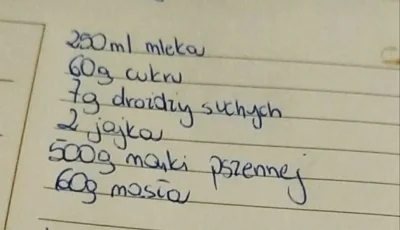 250ml mleka
60g cukru
7g drożdży suchych
2 jajka
500g mąki pszennej
60g masła